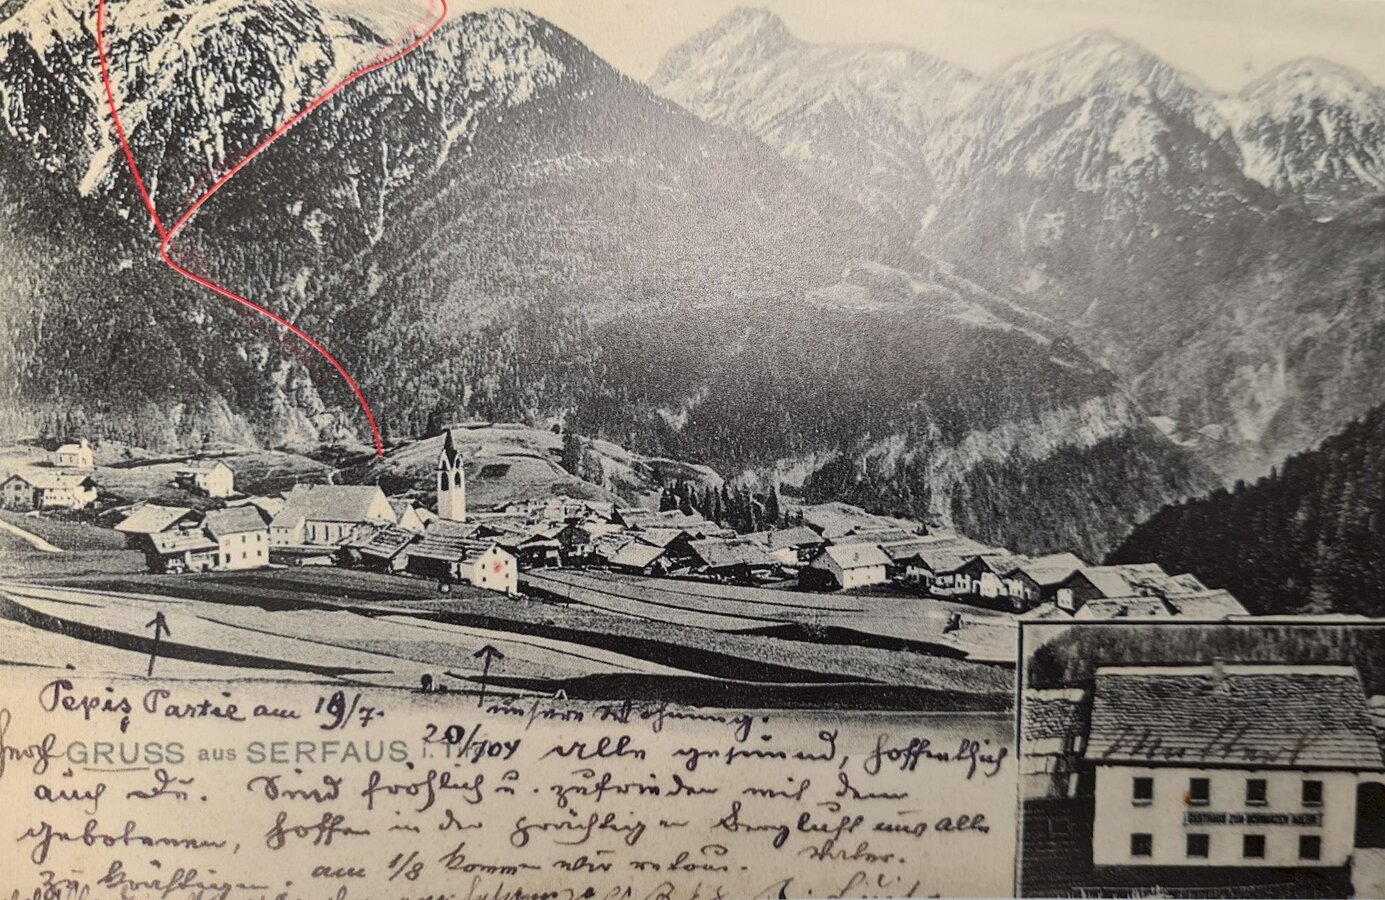 GASTHAUS ZUM SCHWARZEN ADLER
Pepis Partie am 19/7.
unsere Wohnung.
GRUSS aus SERFAUS i. T.
20/7 04 Alle gesund, hoffentlich
auch Du. Sind fröhlich u. zufrieden mit dem
Gebotenen, hoffen in der prächtigen Bergluft uns alle
zu kräftigen. am 1/8 kommen wir retour.